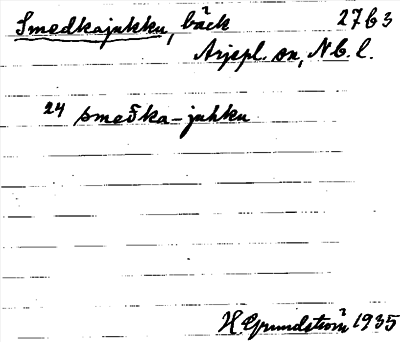 Smedkajukku, bäck 27b3
Arjepl. sn, Nb. l.
24 smeδ̄ka-juhku
H Grundström 1935